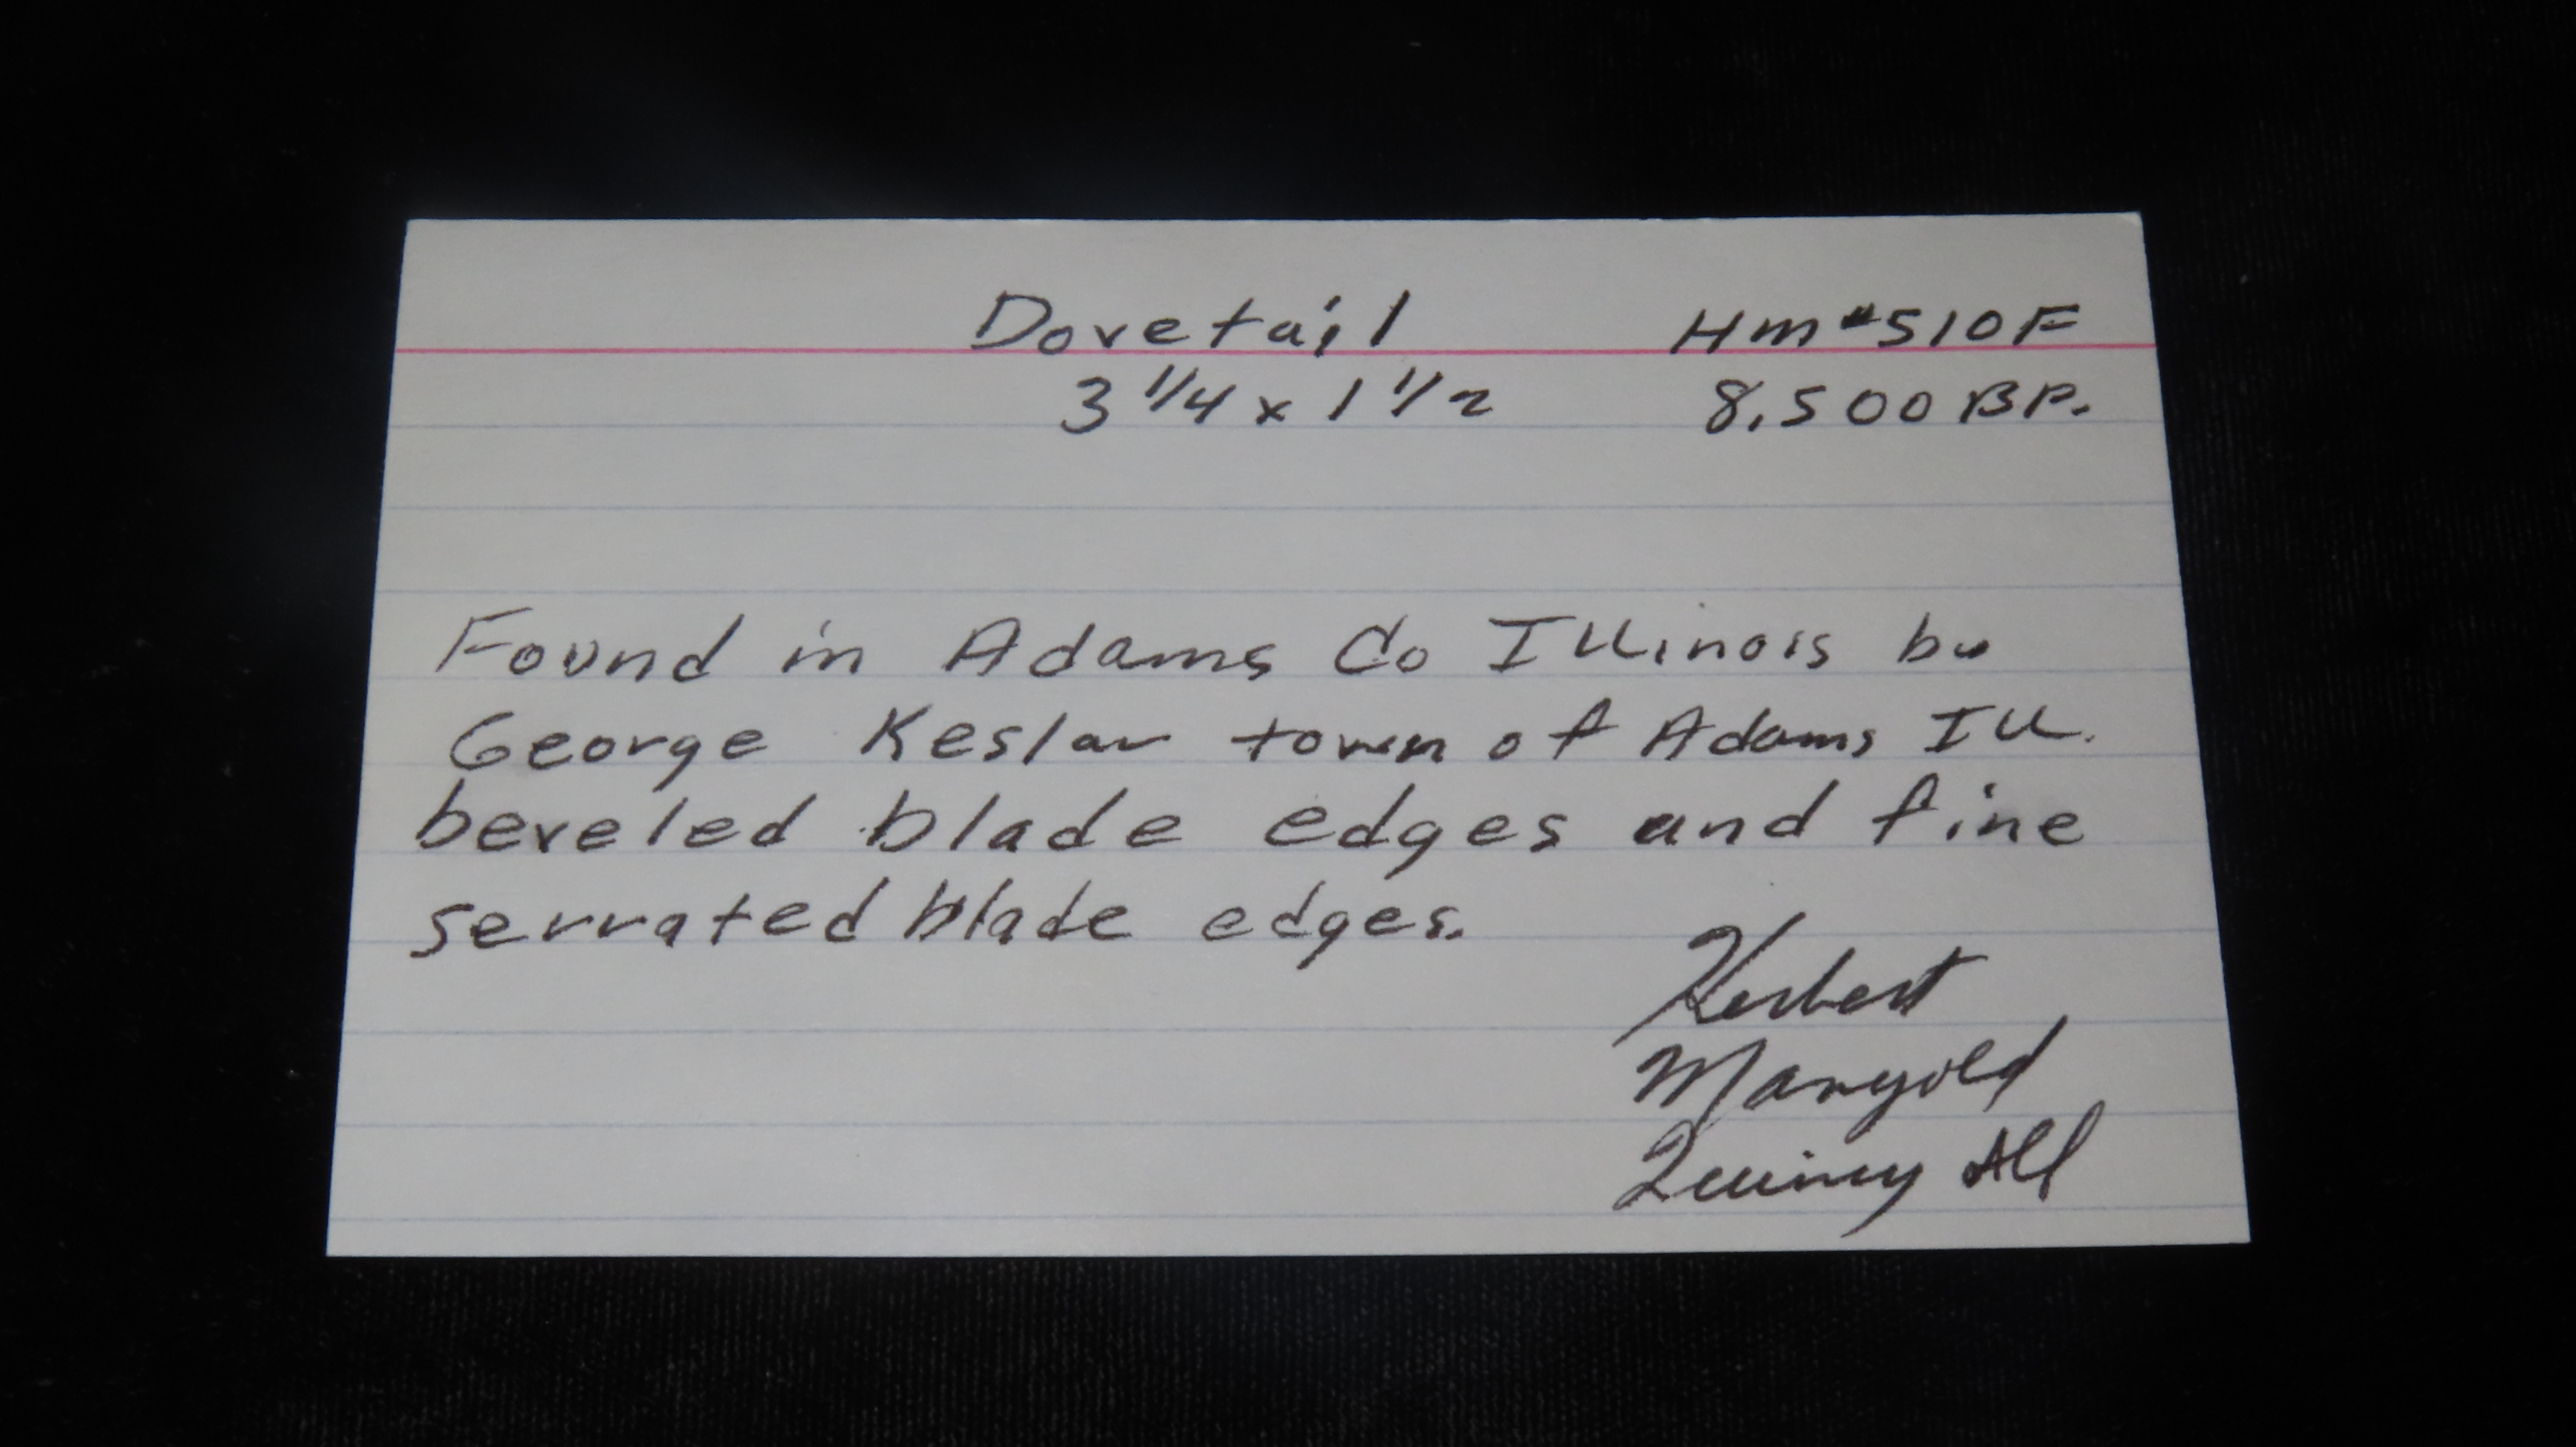 Dovetail Hm#510F
3 1/4 x 1 1/2 8,500 BP.
Found in Adams Co Illinois by
George Keslar town of Adams Ill.
beveled blade edges and fine
serrated blade edges.
Herbert
Mangold
Quincy Ill